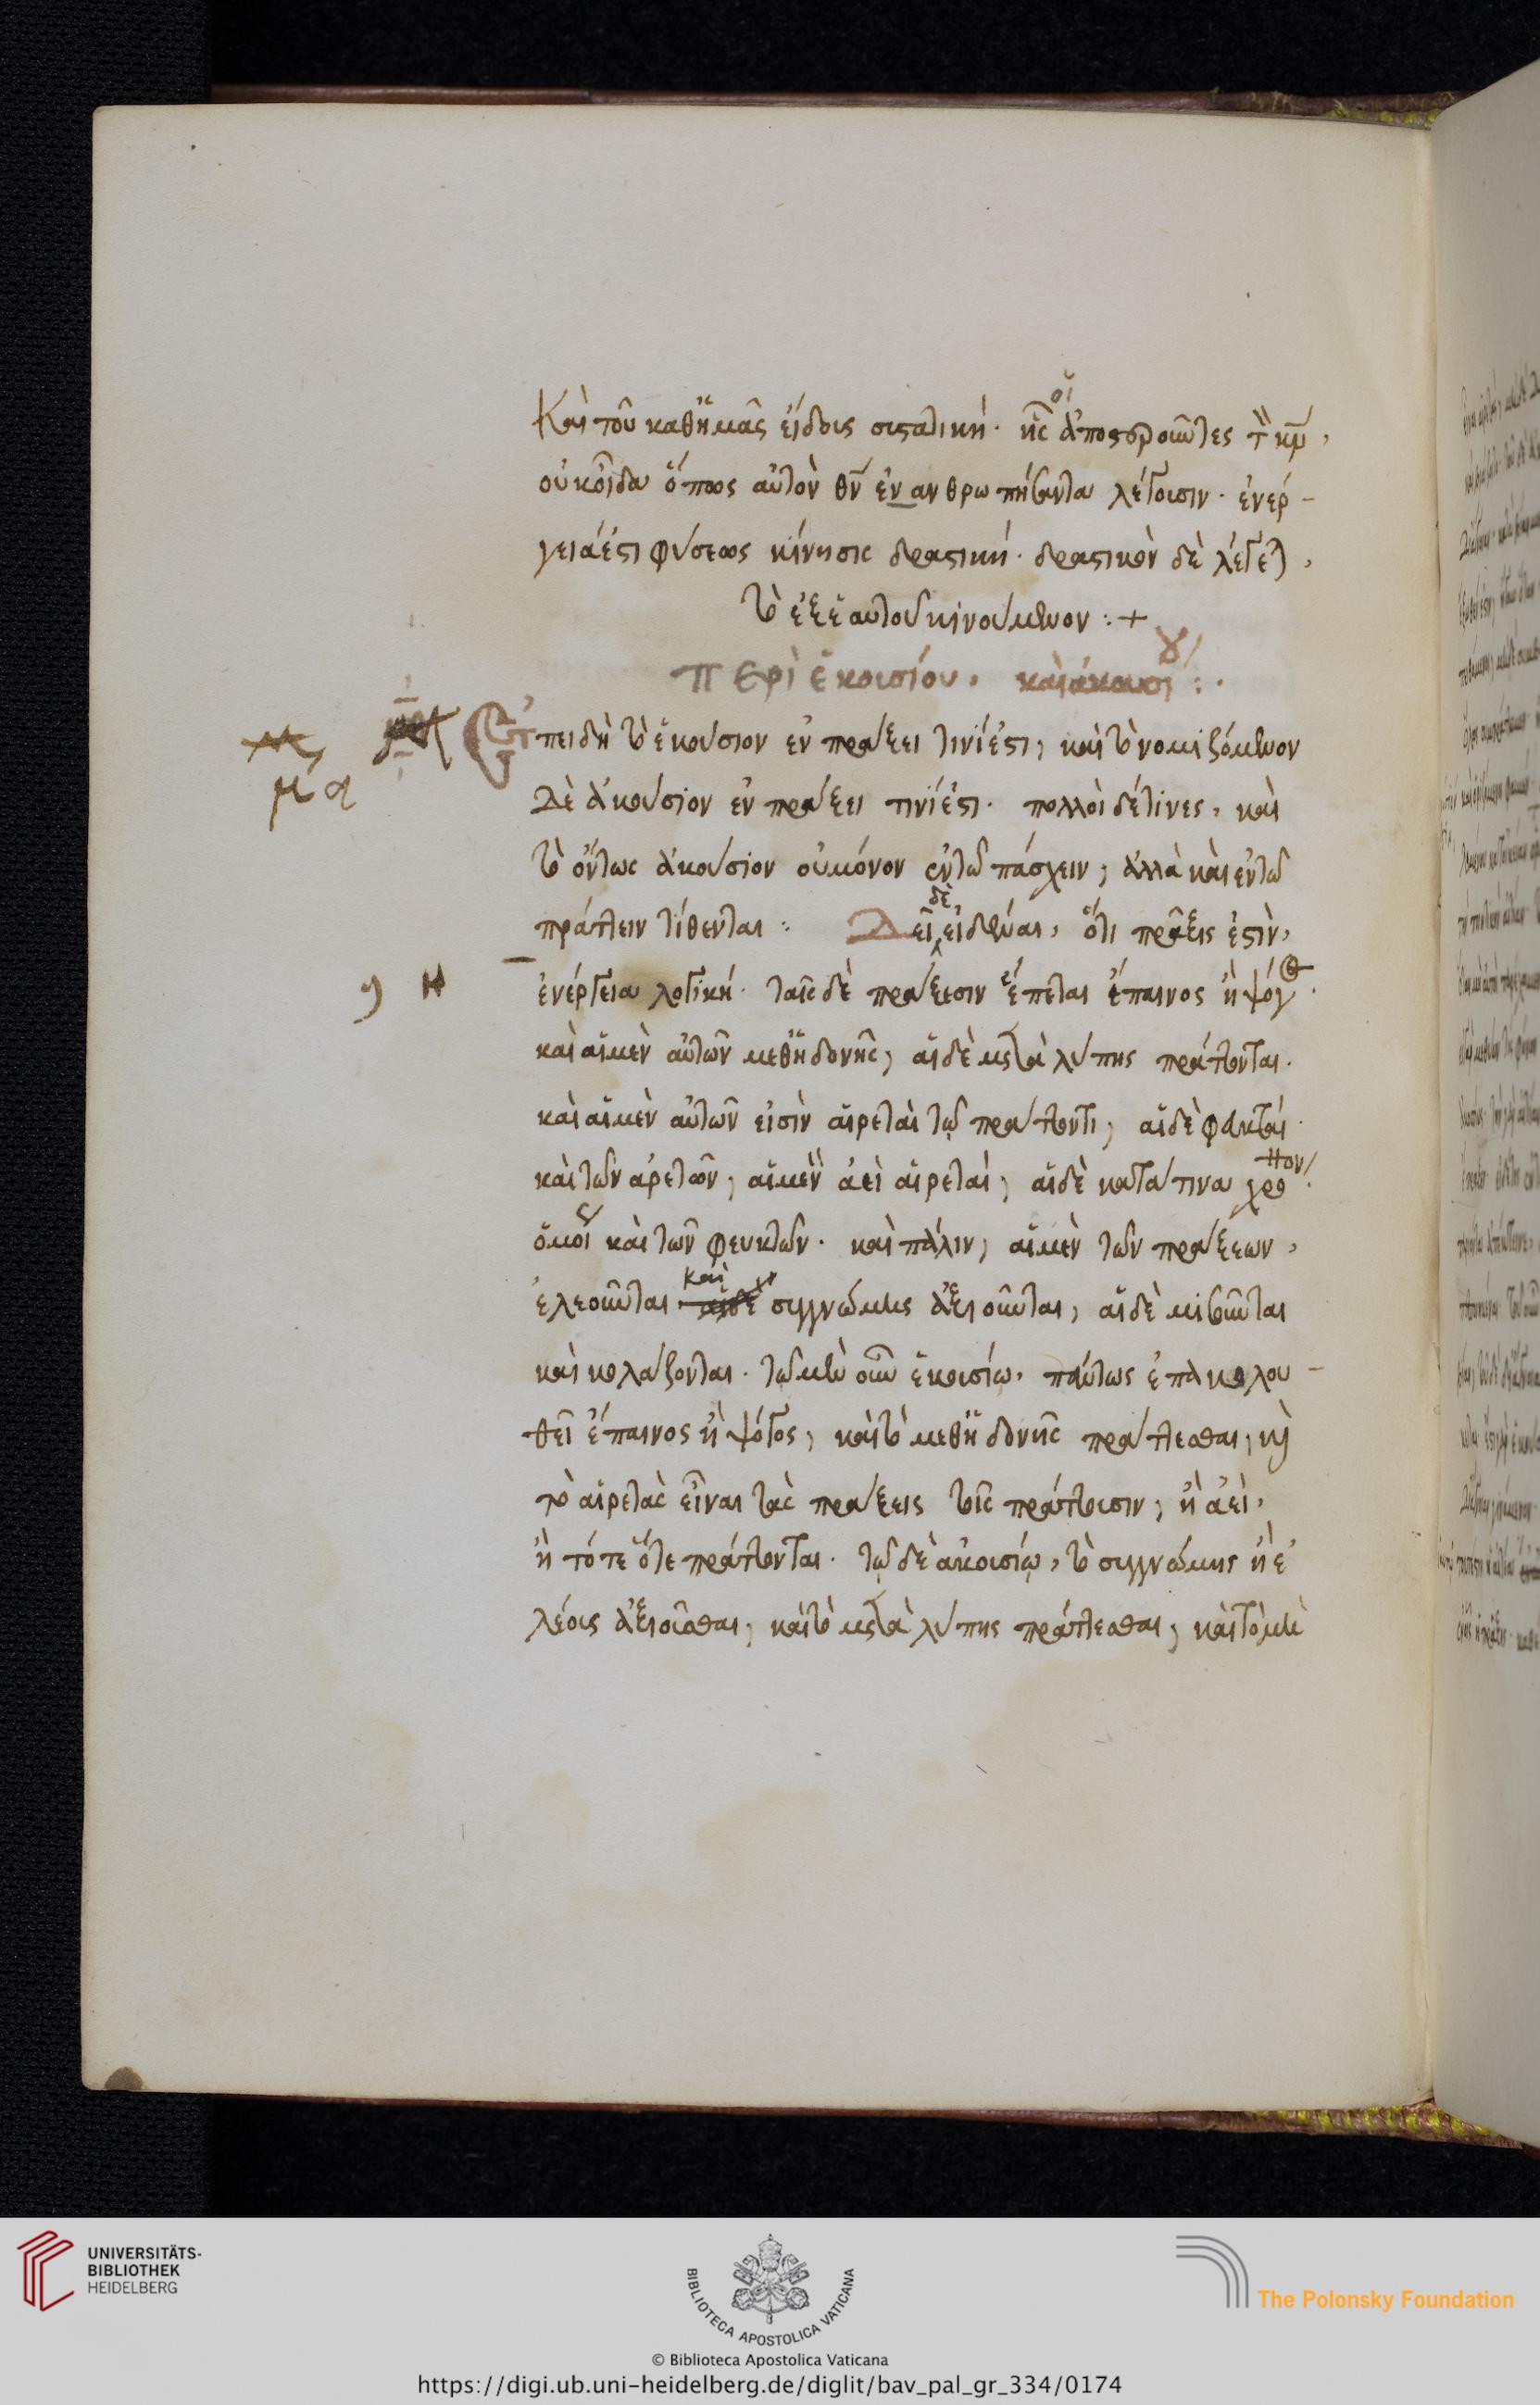 Καὶ τοῦ καθ' ἡμᾶς εἴδους συστατική. ἧς οἱ ἀποστεροῦντες τὸν κν̄,
οὐκ οἶδα ὅπως αὐτὸν θν̄ ἐνανθρωπήσαντα λέγουσιν. ἐνέρ-
γειά ἐστι φύσεως κίνησις δραστική. δραστικὸν δὲ λέγεται,
τὸ ἐξ ἑαυτοῦ κινούμενον :+
Περὶ ἑκουσίου, καὶ ἀκουσίου :.
Ἐπειδὴ τὸ ἑκούσιον ἐν πράξει τινί ἐστι, καὶ τὸ νομιζόμενον
δὲ ἀκούσιον ἐν πράξει τινί ἐστι. πολλοὶ δέ τινες, καὶ
τὸ ὄντως ἀκούσιον οὐ μόνον ἐν τῷ πάσχειν, ἀλλὰ καὶ ἐν τῷ
μα
πράττειν τίθενται : Δεῖ δὲ εἰδέναι, ὅτι πρᾶξις ἐστὶν,
ἐνέργεια λογική. ταῖς δὲ πράξεσιν ἕπεται ἔπαινος ἢ ψόγος.
καὶ αἱ μὲν αὐτῶν μεθ' ἡδονῆς, αἱ δὲ μετὰ λύπης πράττονται.
καὶ αἱ μὲν αὐτῶν εἰσὶν αἱρεταὶ τῷ πράττοντι, αἱ δὲ φευκταί.
καὶ τῶν αἱρετῶν, αἱ μὲν ἀεὶ αἱρεταί, αἱ δὲ κατά τινα χρόνον.
ὁμοίως καὶ τῶν φευκτῶν. καὶ πάλιν, αἱ μὲν τῶν πράξεων,
ἐλεοῦνται καὶ συγγνώμης ἀξιοῦνται, αἱ δὲ μισοῦνται
καὶ κολάζονται. τῷ μὲν οὖν ἑκουσίῳ, πάντως ἐπακολου-
θεῖ ἔπαινος ἢ ψόγος, καὶ τὸ μεθ' ἡδονῆς πράττεσθαι, καὶ
τὸ αἱρετὰς εἶναι τὰς πράξεις τοῖς πράττουσιν, ἢ ἀεὶ,
ἢ τότε ὅτε πράττονται. τῷ δὲ ἀκουσίῳ, τὸ συγγνώμης ἢ ἐ
λέους ἀξιοῦσθαι, καὶ τὸ μετὰ λύπης πράττεσθαι, καὶ τὸ μὴ
UNIVERSITÄTS-
BIBLIOTHEK
HEIDELBERG
BIBLIOTECA APOSTOLICA VATICANA
The Polonsky Foundation
© Biblioteca Apostolica Vaticana
https://digi.ub.uni-heidelberg.de/diglit/bav_pal_gr_334/0174